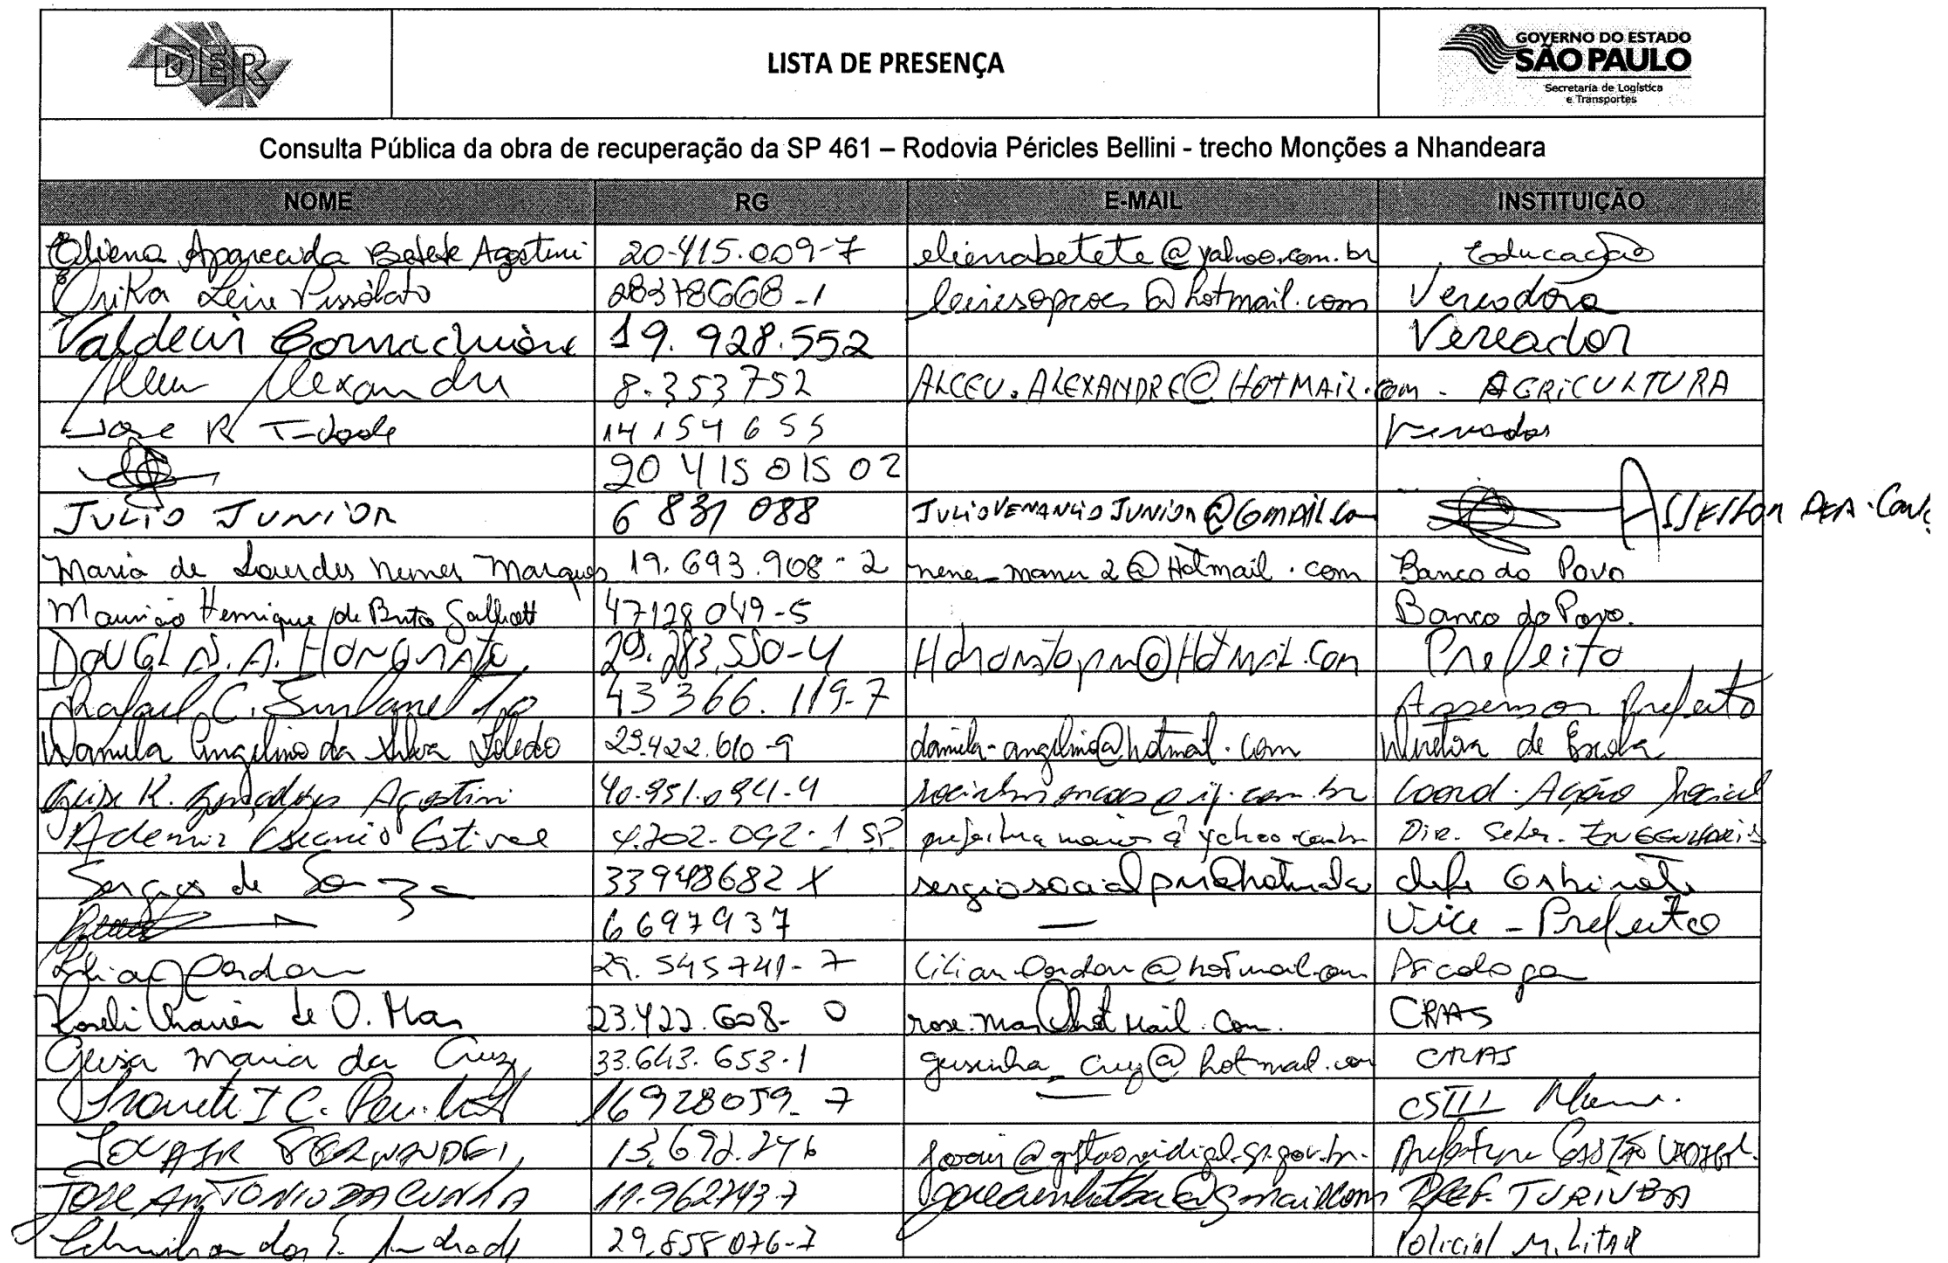 DER
LISTA DE PRESENÇA
GOVERNO DO ESTADO
SÃO PAULO
Secretaria de Logística
e Transportes
Consulta Pública da obra de recuperação da SP 461 – Rodovia Péricles Bellini - trecho Monções a Nhandeara
NOME RG E-MAIL INSTITUIÇÃO
Eliena Aparecida Betete Agostini 20.415.009-7 elienabetete@yahoo.com.br Educação
Erika Leire 28378668-1 @hotmail.com Vereadora
Valdecir 19.928.552 Vereador
Alceu Alexandre 8.353752 ALCEU.ALEXANDRE@HOTMAIL.com - AGRICULTURA
Jose R 14154655 Vereador
20 415015 02
JULIO JUNIOR 6 831 088 JULIOVENANCIOJUNIOR@GMAIL.Com ASSESSOR
Maria de Lourdes Nunes Marques 19.693.908-2 @Hotmail.com Banco do Povo
Mauricio Henrique de Brito 47128049-5 Banco do Povo.
DOUGLAS. A. HONORATO 29.283.550-4 @Hotmail.Com Prefeito
Rafael C. 43 366.119-7 Assessor Prefeito
Damila Angelino da Silva Toledo 23.422.610-9 damila-angelino@hotmail.com Diretora de Escola
K. Gonçalves Agostini Coord. Ação Social
Ademir Estival 4.202.092-1 SP Dir. Setor. ENGENHARIA
Sergio de Souza 33948682 X chefe Gabinete
6697937 — Vice-Prefeito
Lilian Dordan 29.545741-7 Lilian Dordan@hotmail.com Psicologa
Roseli de O. Mar 23.422.608-0 rose.mar@hotMail.Com. CRAS
Geisa Maria da Cruz 33.643.653-1 geisinha_cruz@hotmail.com CRAS
I C. 16928059-7 — CSIII
JOVAIR FERNANDES 13.692.246 jovair@gastaovidigal.sp.gov.br. Prefeitura GASTÃO VIDIGAL.
JOSE ANTONIO DA CUNHA 11.962743-7 @gmail.com PREF. TURIUBA
dos S. Andrade 29.858 076-7 Policial Militar